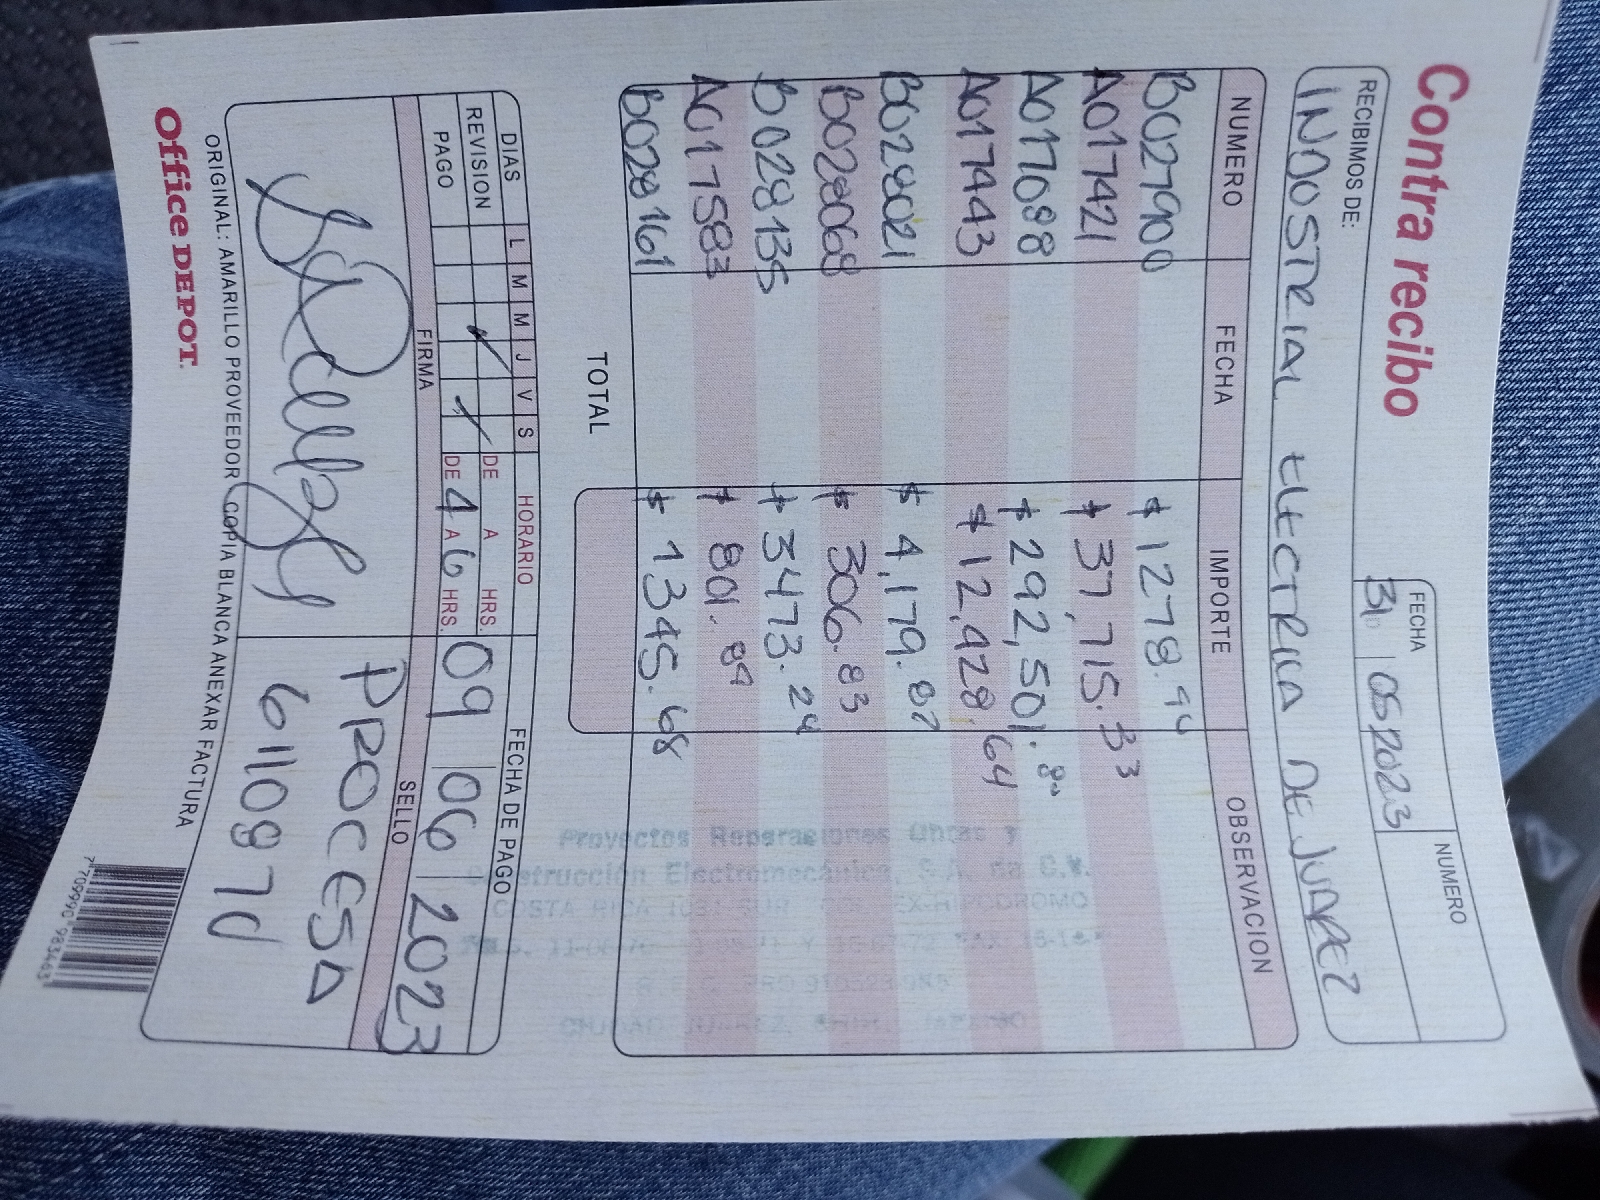 Contra recibo
FECHA NUMERO
31 05 2023
RECIBIMOS DE:
INDUSTRIAL ELECTRICA DE JUAREZ
NUMERO FECHA IMPORTE OBSERVACION
B027900 $ 1278.94
A017421 $ 37,715.33
A017088 $ 292,501.
A017443 $ 12,428.64
B028021 $ 4,179.87
B028068 $ 306.83
B028135 $ 3473.24
A017583 $ 801.89
B028161 $ 1345.68
TOTAL
Proyectos Reparaciones Obras y
Construcción Electromecánica, S.A. de C.V.
COSTA RICA SUR EX-HIPODROMO
CIUDAD JUAREZ,
DIAS L M M J V S HORARIO FECHA DE PAGO
REVISION DE A HRS.
PAGO DE 4 A 6 HRS. 09 06 2023
FIRMA SELLO
PROCESA
ORIGINAL: AMARILLO PROVEEDOR COPIA BLANCA ANEXAR FACTURA
Office DEPOT.
7 709990 983463